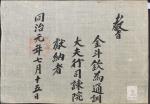 敎旨
金斗欽爲通訓
大夫行司諫院
獻納者
同治元年七月十五日